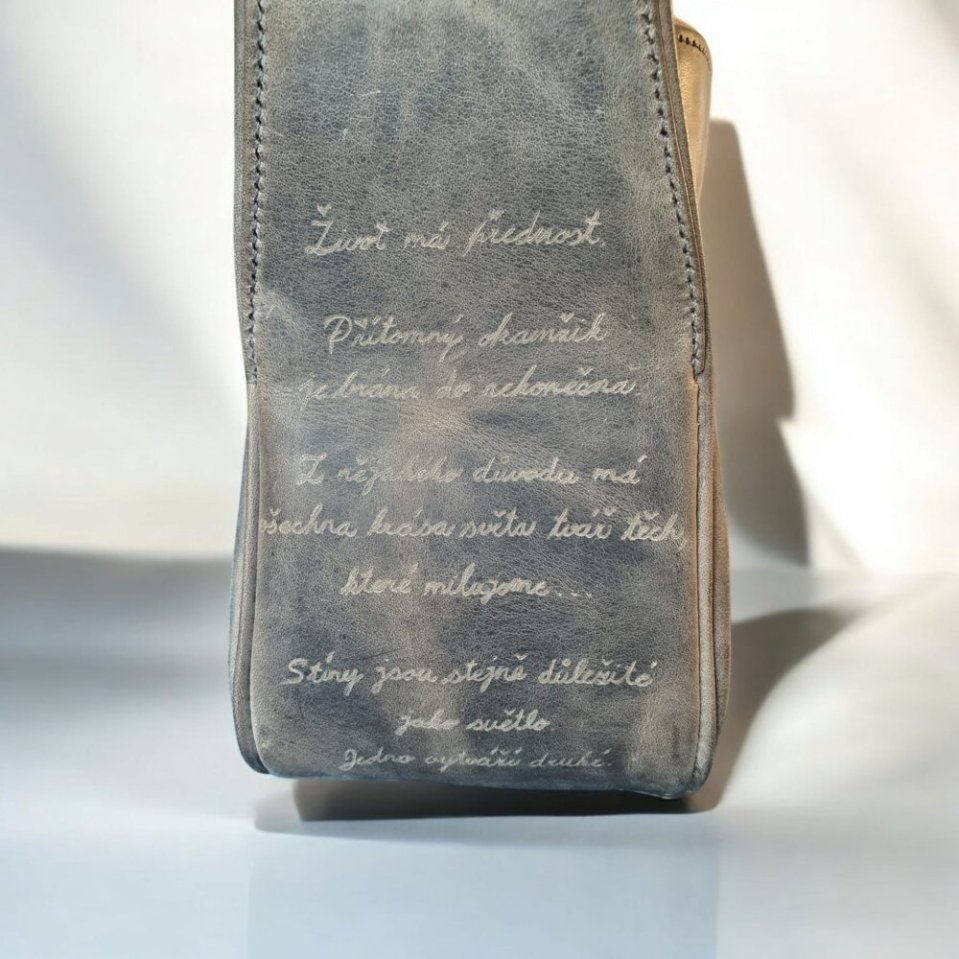 Život má přednost.
Přítomný okamžik
je brána do nekonečna.
Z nějakého důvodu má
všechna krása světa tvář těch,
které milujeme...
Stíny jsou stejně důležité
jako světlo.
Jedno vytváří druhé.